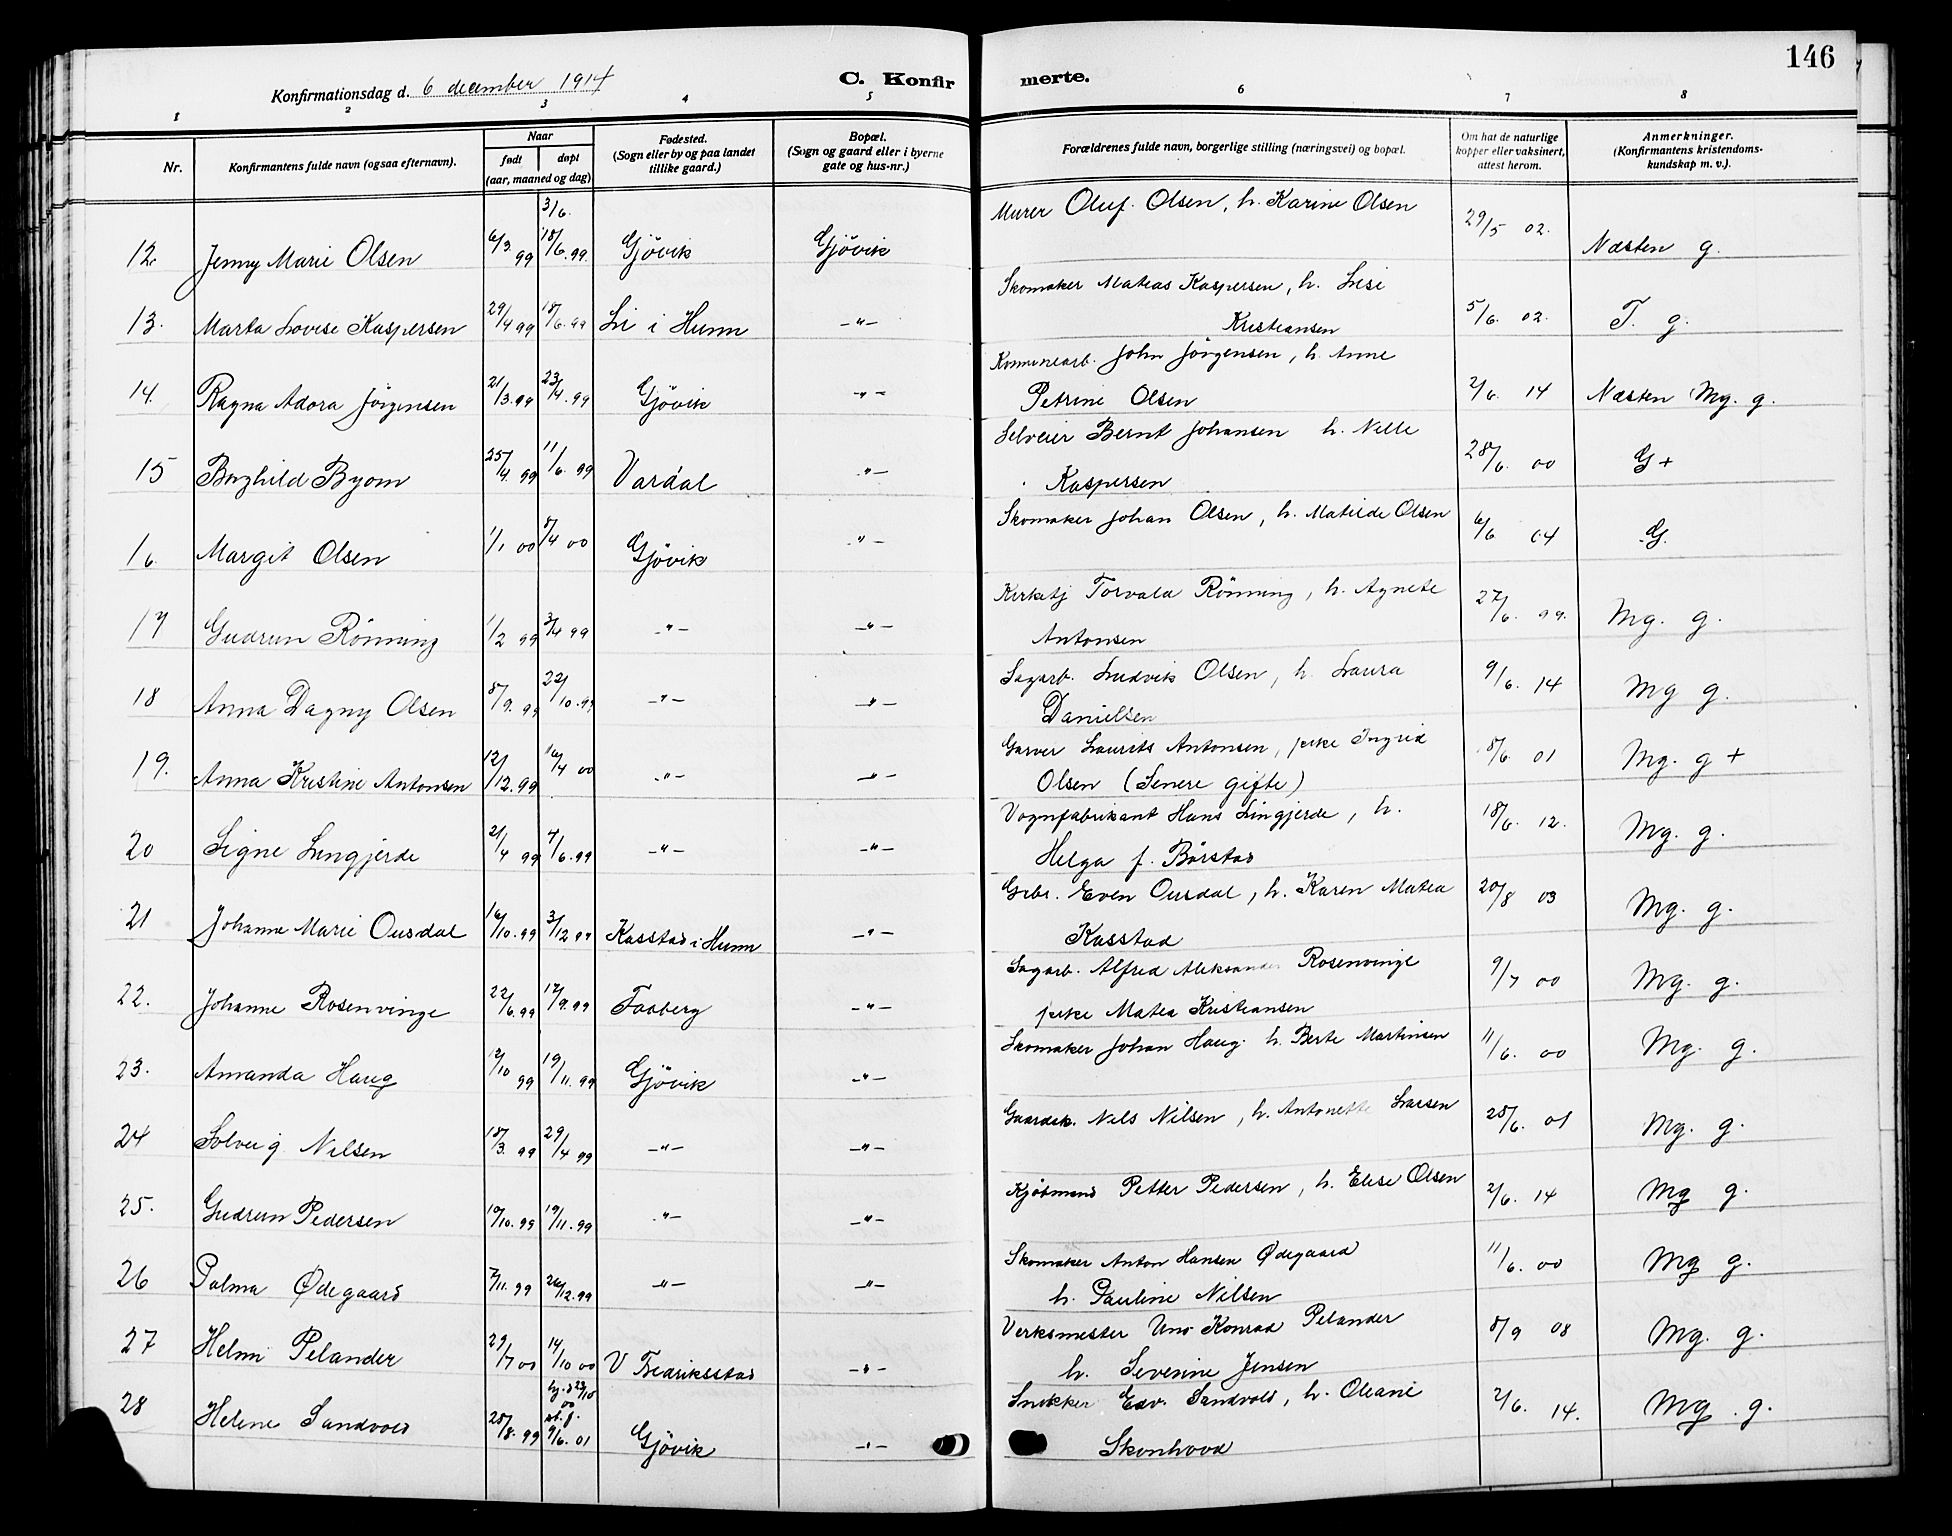 146
Konfirmationsdag d. 6 december 1914 C. Konfirmerte.
1 2 3 4 5 6 7 8
Nr. Konfirmantens fulde navn (ogsaa efternavn). Naar født døpt (aar, maaned og dag) Fødested. (Sogn eller by og paa landet tillike gaard.) Bopæl. (Sogn og gaard eller i byerne gate og hus-nr.) Forældrenes fulde navn, borgerlige stilling (næringsvei) og bopæl. Om hat de naturlige kopper eller vaksinert, attest herom. Anmerkninger. (Konfirmantens kristendoms-kundskap m. v.).
3/6.
12. Jenny Marie Olsen 6/3 99 18/6.99 Gjövik Gjövik Murer Oluf Olsen, h. Karine Olsen 29/5 02. Næsten g.
13. Marta Lovise Kaspersen 29/4 99 18/6.99 Li i Hunn -"- Skomaker Mateas Kaspersen, h. Lisi
Kristiansen 5/6. 02. T. g.
14. Ragna Adora Jörgensen 21/3.99 23/4.99 Gjövik -"- Komunearb. John Jörgensen, h. Anne
Petrine Olsen 2/6. 14 Næsten Mg. g.
15 Borghild Byom 25/4.99 11/6.99 Vardal -"- Selveier Bernt Johansen h. Nille
Kaspersen 28/6. 00 G+
16 Margit Olsen 1/1 00 8/4 00 Gjövik -"- Skomaker Johan Olsen, h. Matilde Olsen 6/6 04 G.
17 Gudrun Rönning 1/2 99 3/4 99 -"- -"- Kirketj Torvald Rönning, h. Agnete
Antonsen 27/6. 99. Mg. g.
18 Anna Dagny Olsen 8/9.99 22/10.99 -"- -"- Sagarb. Ludvik Olsen, h. Laura
Danielsen 9/6. 14 Mg g.
19. Anna Kristine Antonsen 12/12.99 16/4 00 -"- -"- Garver Laurits Antonsen, pike Ingrid
Olsen (Senere gifte) 8/6. 01 Mg. g +
20 Signe Lingjerde 21/4 99 4/6.99 -"- -"- Vognfabrikant Hans Lingjerde, h.
Helga f. Börstad 18/6. 12. Mg. g.
21 Johanne Marie Ousdal 16/10.99 3/12 99 Kasstad i Hunn -"- Grbr. Even Ousdal, h. Karen Matea
Kasstad 20/8 03 Mg. g.
22. Johanne Rosenvinge 22/6.99 17/9.99 Faaberg -"- Sagarb. Alfred Aleksander Rosenvinge
pike Matea Kristiansen 9/7 00 Mg. g.
23. Amanda Haug 12/10 99 19/11.99 Gjövik -"- Skomaker Johan Haug. h. Berte Martinsen 11/6. 00 Mg. g.
24 Solveig Nilsen 18/3. 99 29/4 99 -"- -"- Gaardsk. Nils Nilsen, h. Antonette Larsen 25/6. 01 Mg. g.
25. Gudrun Pedersen 10/10.99 19/11.99 -"- -"- Kjöbmand Petter Pedersen, h. Elise Olsen 2/6. 14 Mg g.
26 Palma Ødegaard 7/11.99 26/12.99 -"- -"- Skomaker Anton Hansen Ødegaard
h. Pauline Nilsen 11/6. 00 Mg g.
27 Helmi Pelander 29/7 00 14/10 00 V Fredriksstad -"- Verksmester Uno Konrad Pelander
h. Severine Jensen 8/9 08 Mg. g.
28 Helene Sandvold 28/8.99 hj.d 22/10 00 st.f. 9/6.01 Gjövik -"- Snekker Edv. Sandvold, h. Oleane
Skonhovd 2/6. 14. Mg. g.